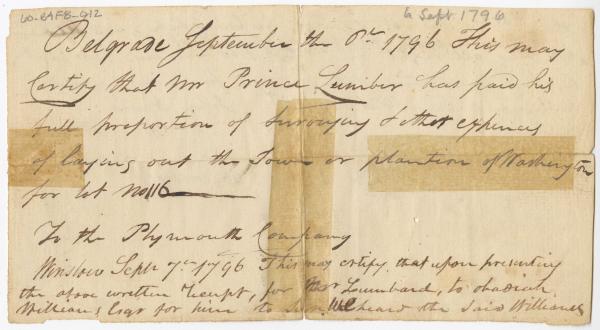 60-BAFB-Q12
6 Sept 1796
Belgrade September the 6th 1796 This may
Certify that Mr Prince Lumber has paid his
full proportion of Survaying & other expences
of laying out the Town or plantion of Washington
for lot No 116
To the Plymouth Company
Winslow Septr 7th 1796 This may certify that upon presenting
the above written receipt, for Mr Lumbard, to obadiah
Williams Esqr for him to heard the Said Williams